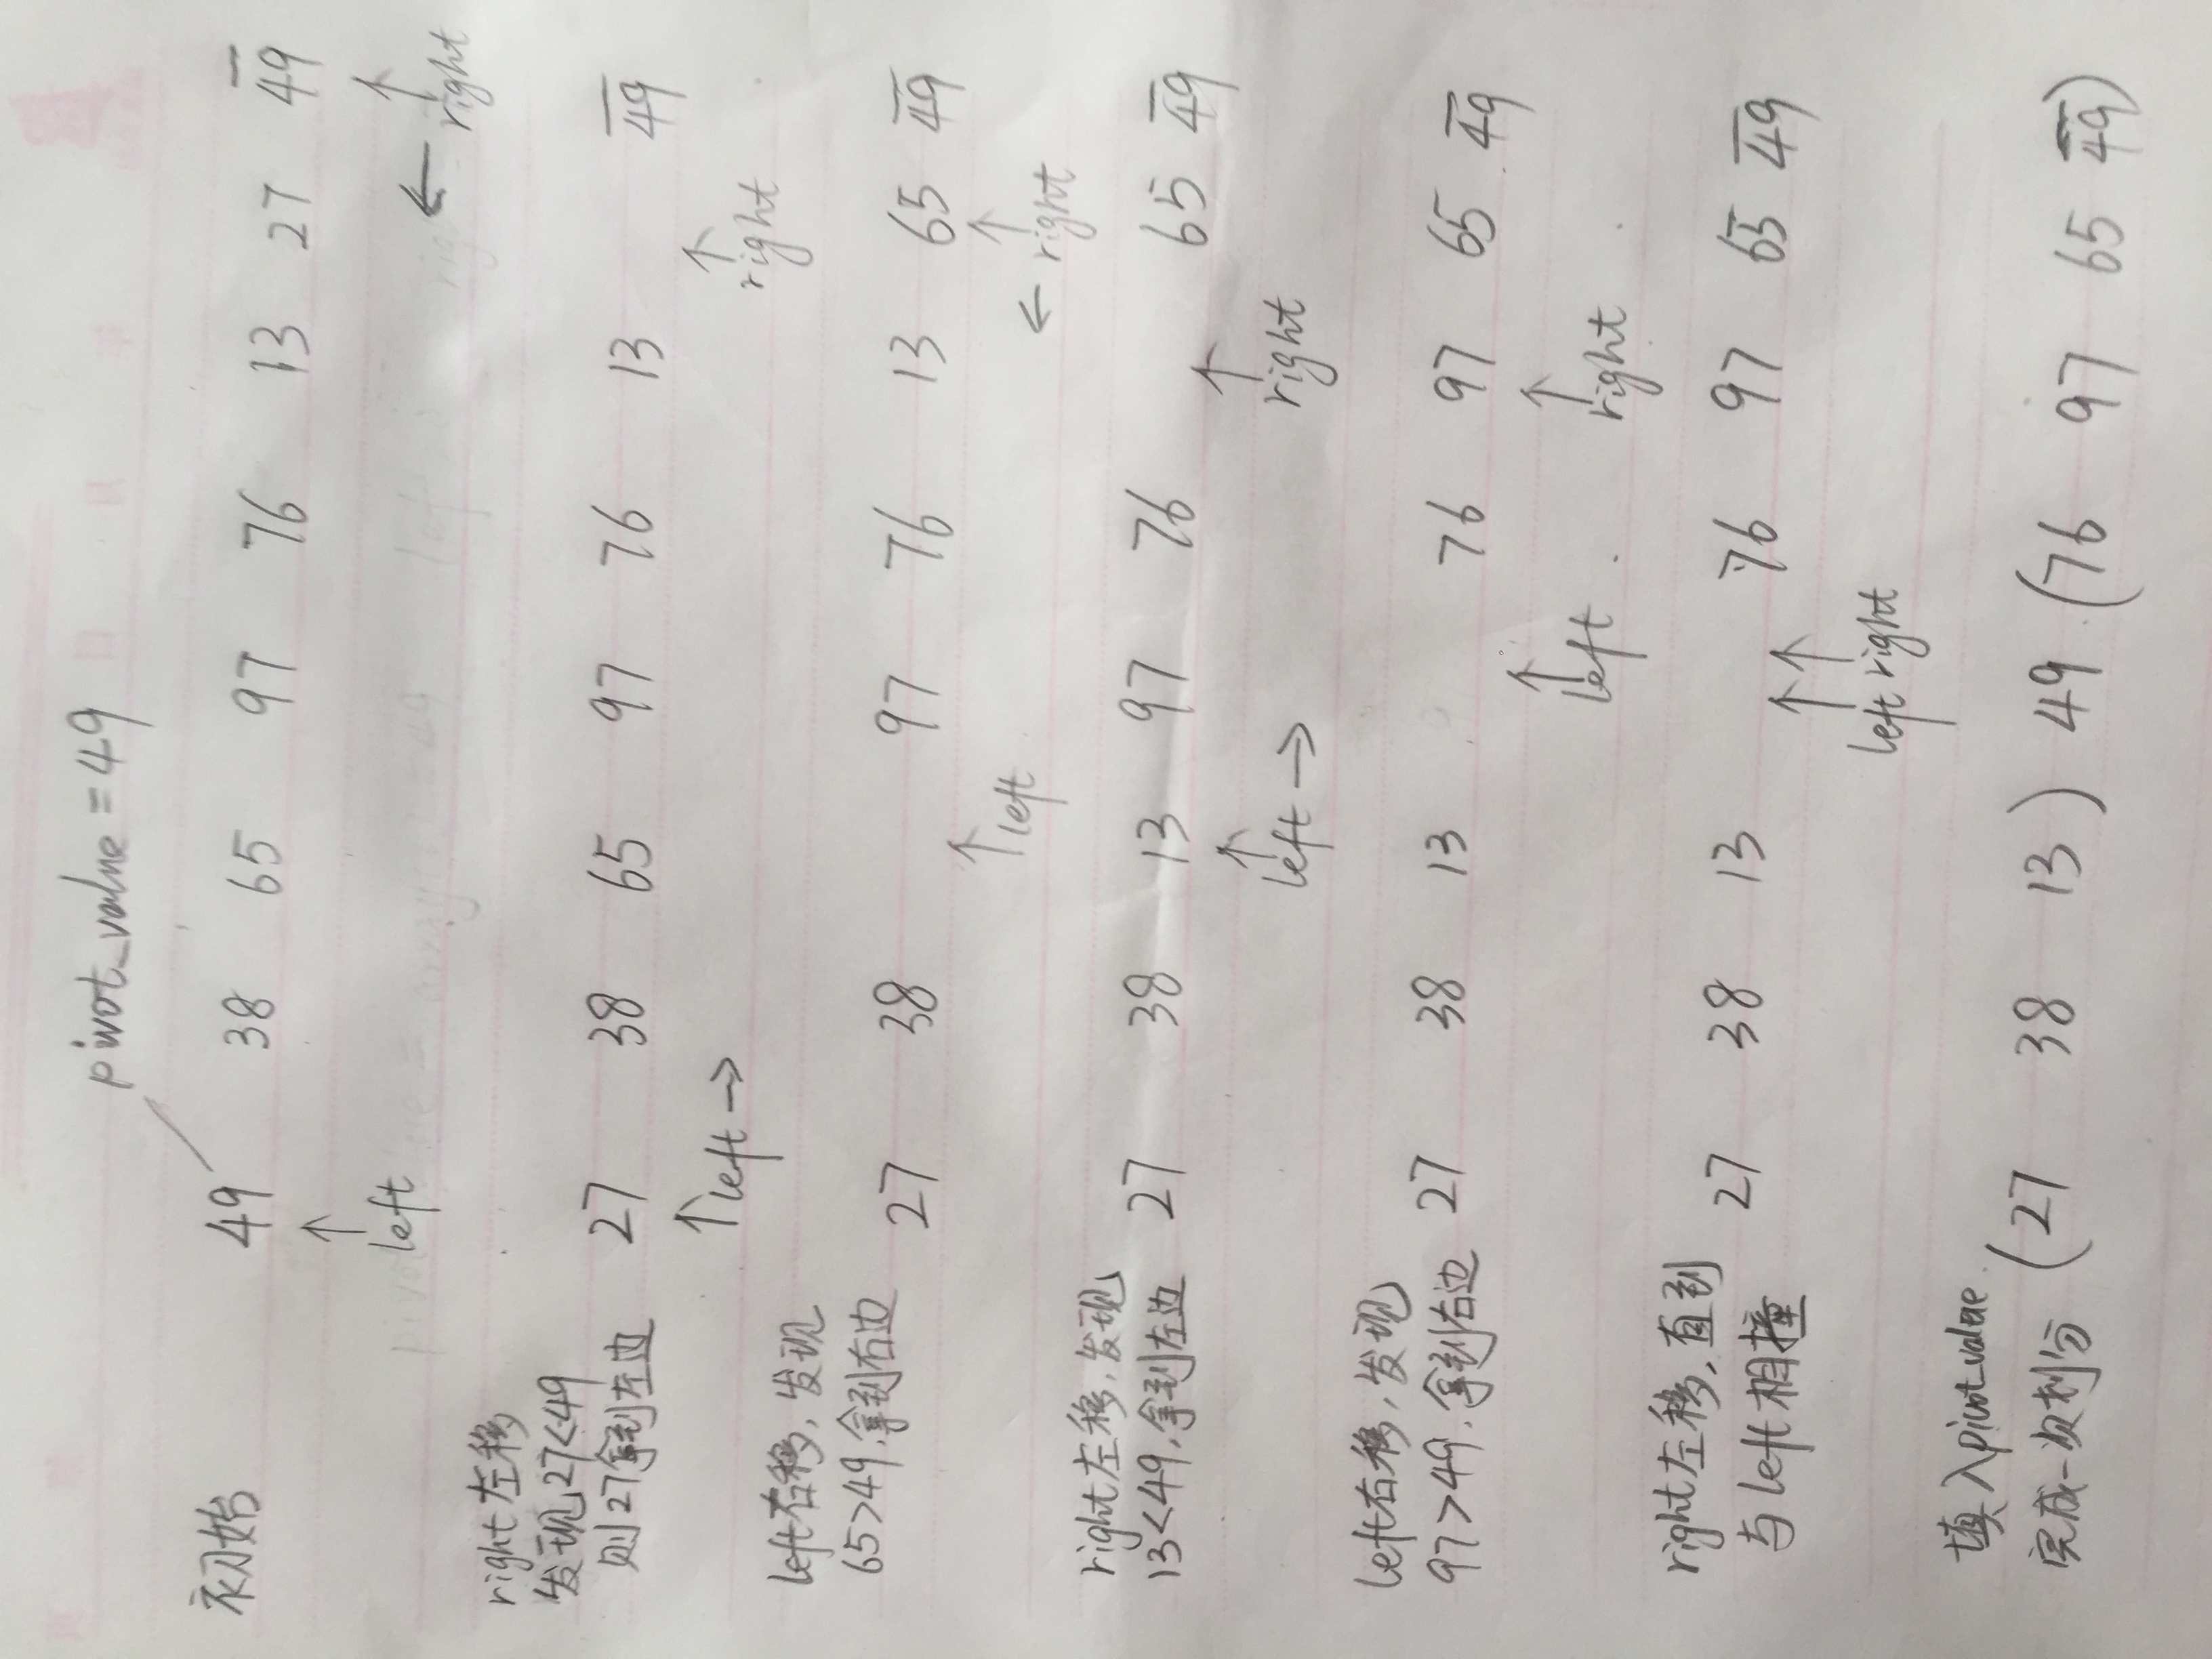 pivot_value = 49
初始 49 38 65 97 76 13 27 4̅9̅
↑ ↑
left ← right
right左移
发现27<49
则27拿到左边 27 38 65 97 76 13 4̅9̅
↑left → ↑
right
left右移,发现
65>49,拿到右边 27 38 97 76 13 65 4̅9̅
↑left ← ↑right
right左移,发现
13<49,拿到左边 27 38 13 97 76 65 4̅9̅
↑ ↑
left → right
left右移,发现
97>49,拿到右边 27 38 13 76 97 65 4̅9̅
↑ ↑
left right
right左移,直到
与left相撞 27 38 13 76 97 65 4̅9̅
↑ ↑
left right
填入pivot_value
完成一次划分 (27 38 13) 49 (76 97 65 4̅9̅)